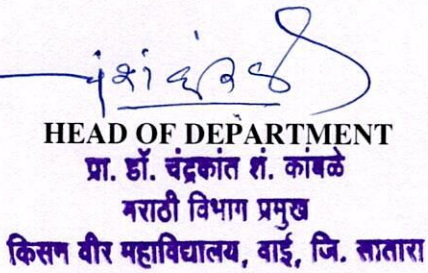 HEAD OF DEPARTMENT
प्रा. डॉ. चंद्रकांत शं. कांबळे
मराठी विभाग प्रमुख
किसन वीर महाविद्यालय, वाई, जि. सातारा